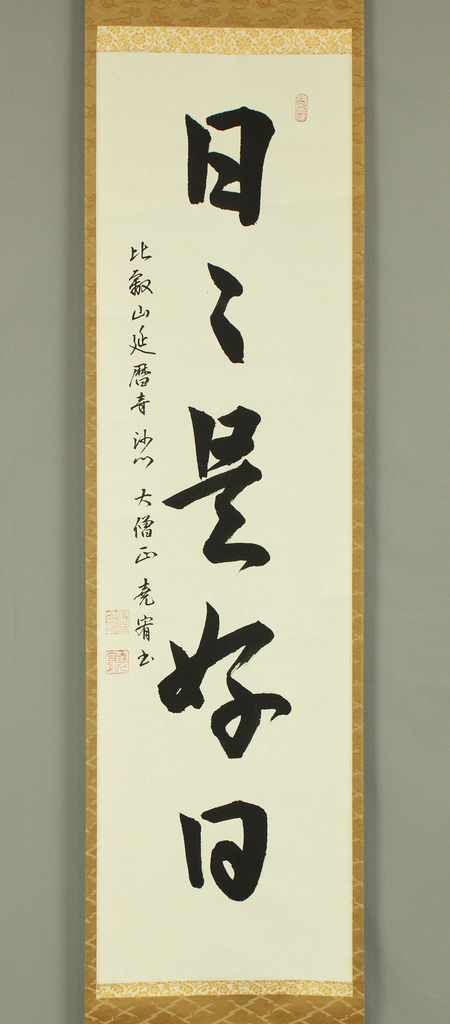 日〻是好日
比叡山延暦寺 沙門 大僧正 堯宥書